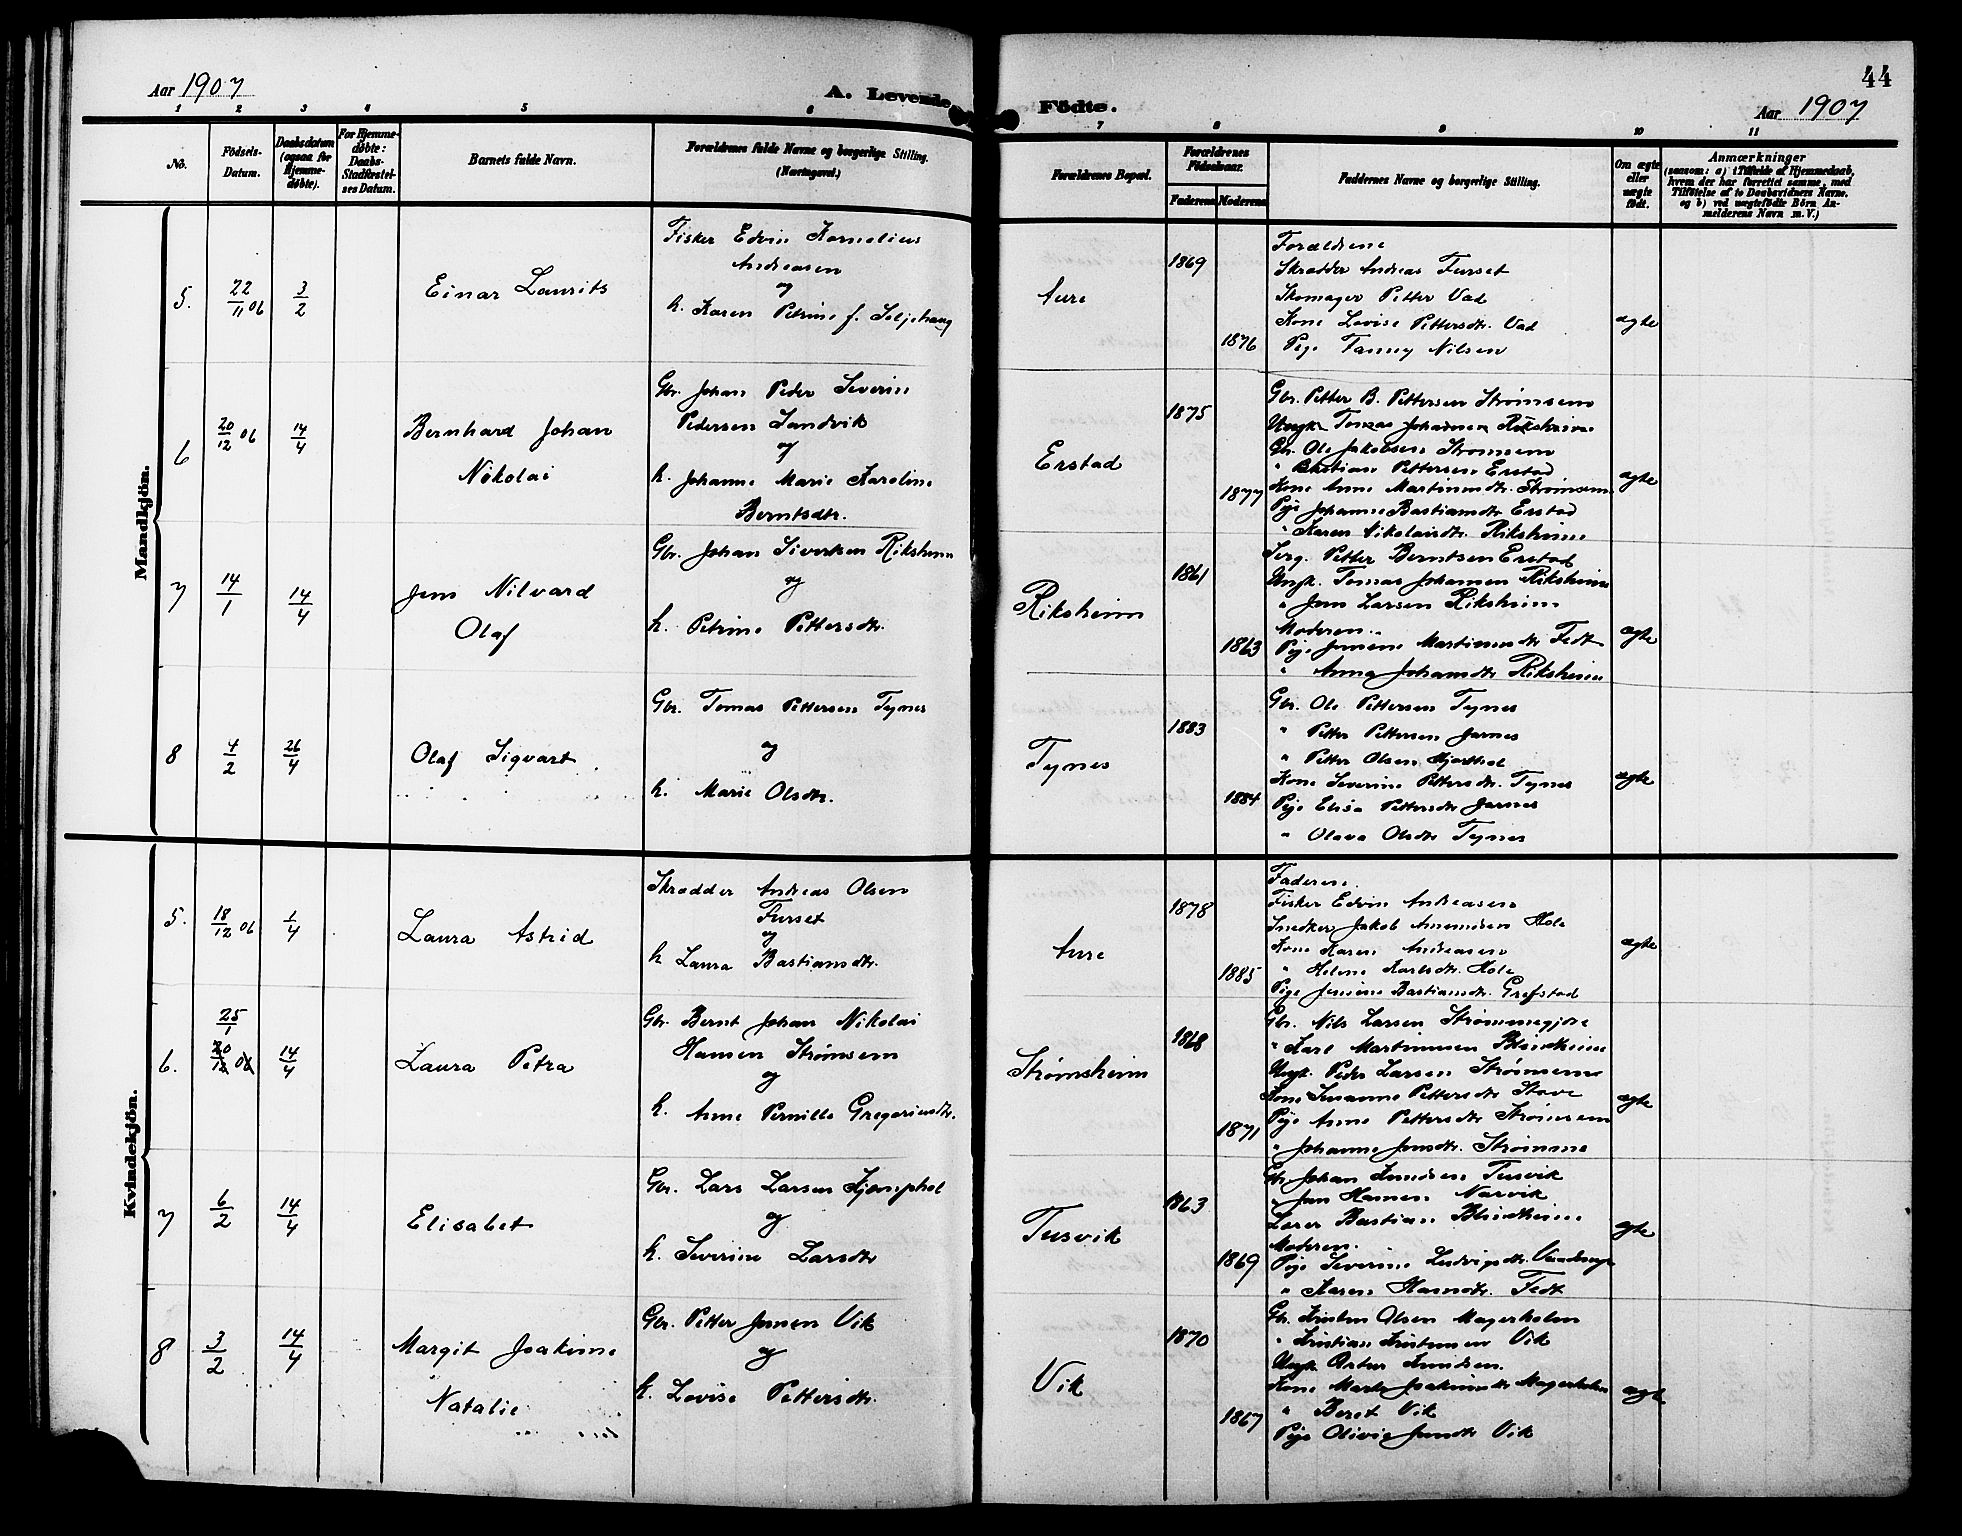 Aar 1907
A. Levende
1 2 3 4 5 6
No.
Födsels-Datum.
Daabsdatum (ogsaa for Hjemme-døbte).
For Hjemme-døbte: Daabs-Stadfæstel-ses Datum.
Barnets fulde Navn.
Forældrenes fulde Navne og borgerlige Stilling.
(Næringsvei.)
Mandkjön.
5. 22/11 06 3/2 Einar Laurits
Fisker Edvin Kornelius
Andreasen
og
h. Karen Petrine f. Seljehaug
6 20/12 06 14/4 Bernhard Johan
Nikolai
Gbr. Johan Peder Severin
Pedersen Sandvik
og
h. Johanne Marie Karoline
Berntsdtr.
7 14/1 14/4 Jens Nilvard
Olaf
Gbr. Johan Sivertsen Riksheim
og
h. Petrine Pettersdtr.
8 4/2 26/4 Olaf Sigvart
Gbr. Tomas Pettersen Tynes
og
h. Marie Olsdtr.
Kvindekjön.
5. 18/12 06 1/4 Laura Astrid
Skrædder Andreas Olsen
Furset
og
h Laura Bastiansdtr.
6. 25/1 14/4 Laura Petra
Gbr. Bernt Johan Nikolai
Hansen Strømsem
og
h. Anne Pernille Gregoriusdtr.
7 6/2 14/4 Elisabet
Gbr. Lars Larsen Kjemphol
og
h. Severine Larsdtr
8 3/2 14/4 Margit Joakime
Natalie
Gbr. Petter Jensen Vik
og
h. Lovise Pettersdtr.
44
Födte.
Aar 1907
7 8 9 10 11
Forældrenes Bopæl.
Forældrenes Födselsaar.
Faderens Moderens
Faddernes Navne og borgerlige Stilling.
Om ægte eller uægte født.
Anmærkninger
(saasom: a) i Tilfælde af Hjemmedaab,
hvem der har forrettet samme, med
Tilföielse af to Daabsvidners Navne.
og b) ved uægtefödte Börn An-
melderens Navn m. V.)
Aure 1869 1876 ægte
Forældrene
Skrædder Andreas Furset
Skomager Petter Vad
Kone Lovise Pettersdtr. Vad
Pige Fanny Nilsen
Erstad 1875 1877 ægte
Gbr. Petter B. Pettersen Strømsem
Ungk. Tomas Johansen Riksheim
Gbr. Ole Jakobsen Strømsem
" Bastian Pettersen Erstad
Kone Anne Martinusdtr. Strømsem
Pige Johanne Bastiansdtr Erstad
" Karen Nikolaisdtr. Riksheim
Riksheim 1861 1863 ægte
Serg. Petter Berntsen Erstad
Ungk. Tomas Johansen Riksheim
" Jens Larsen Riksheim
Moderen.
Pige Jensine Martinusdtr Fedt
" Anna Johansdtr Riksheim
Tynes 1883 1884 ægte
Gbr. Ole Pettersen Tynes
" Petter Pettersen Jarnes
" Petter Olsen
Kone Severine Pettersdtr. Tynes
Pige Elisa Pettersdtr Jarnes
" Olava Olsdtr Tynes
Aure 1878 1885 ægte
Faderen.
Fisker Edvin Andreasen
Snedker Jakob Amundsen Hole
Kone Karen Andreasen
" Helene Karlsdtr. Hole
Pige Jensine Bastiansdtr. Grefstad
Strømsheim 1868 1871 ægte
Gbr. Nils Larsen Strømmegjære
" Karl Martinusen Blindheim
Ungk. Peder Larsen Strømsem
Kone Susanne Pettersdtr Stave
Pige Anne Pettersdtr Strømsem
" Johanne Jensdtr. Strømme
Tusvik 1863 1869 ægte
Gbr Johan Knudsen Tusvik
" Jens Hansen Narvik
Lærer Bastian Blindheim
Moderen.
Pige Severine Ludvigsdtr.
" Karen Hansdtr. Fedt
Vik 1870 1867 ægte
Gbr. Kristen Olsen Magerholm
" Kristian Kristensen Vik
Ungk. Artur Knudsen.
Kone Marte Joakimsdtr Magerholm
" Beret Vik
Pige Olivia Jensdtr Vik